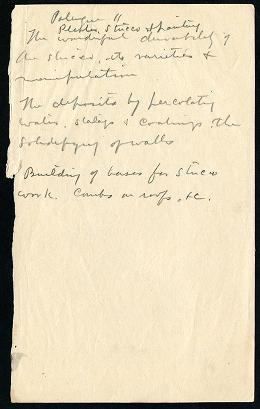 Palenque II
Plaster, Stucco & painting
The wonderful durability of
the stucco, its varieties &
manipulation
The deposits by percolating
water, stalags & coatings, the
solidifying of walls
Building of bases for stucco
work. Combs on roofs, &c.